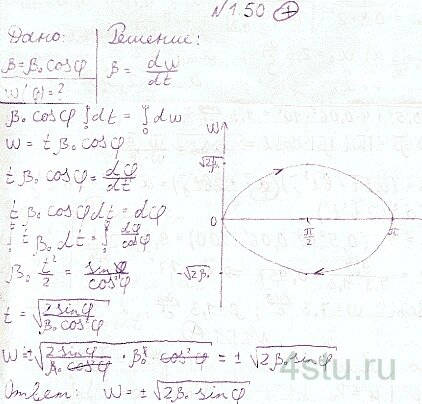 N 1.50 +
Дано: Решение:
β = β₀ cos φ
β = dw/dt
w(φ) = ?
β₀ cos φ ∫₀ dt = ∫₀ dw
w = t β₀ cos φ
t β₀ cos φ = dφ/dt
t β₀ cos φ dt = dφ
∫ t β₀ dt = ∫ dφ/cos φ
β₀ t²/2 = sin φ/cos² φ
t = √(2 sin φ/β₀ cos² φ)
w = ± √(2 sin φ/β₀ cos² φ · β₀² cos² φ) = ± √(2β₀ sin φ)
Ответ: w = ± √(2β₀ sin φ)
w
√2β₀
0
π/2
π
-√2β₀
4stu.ru